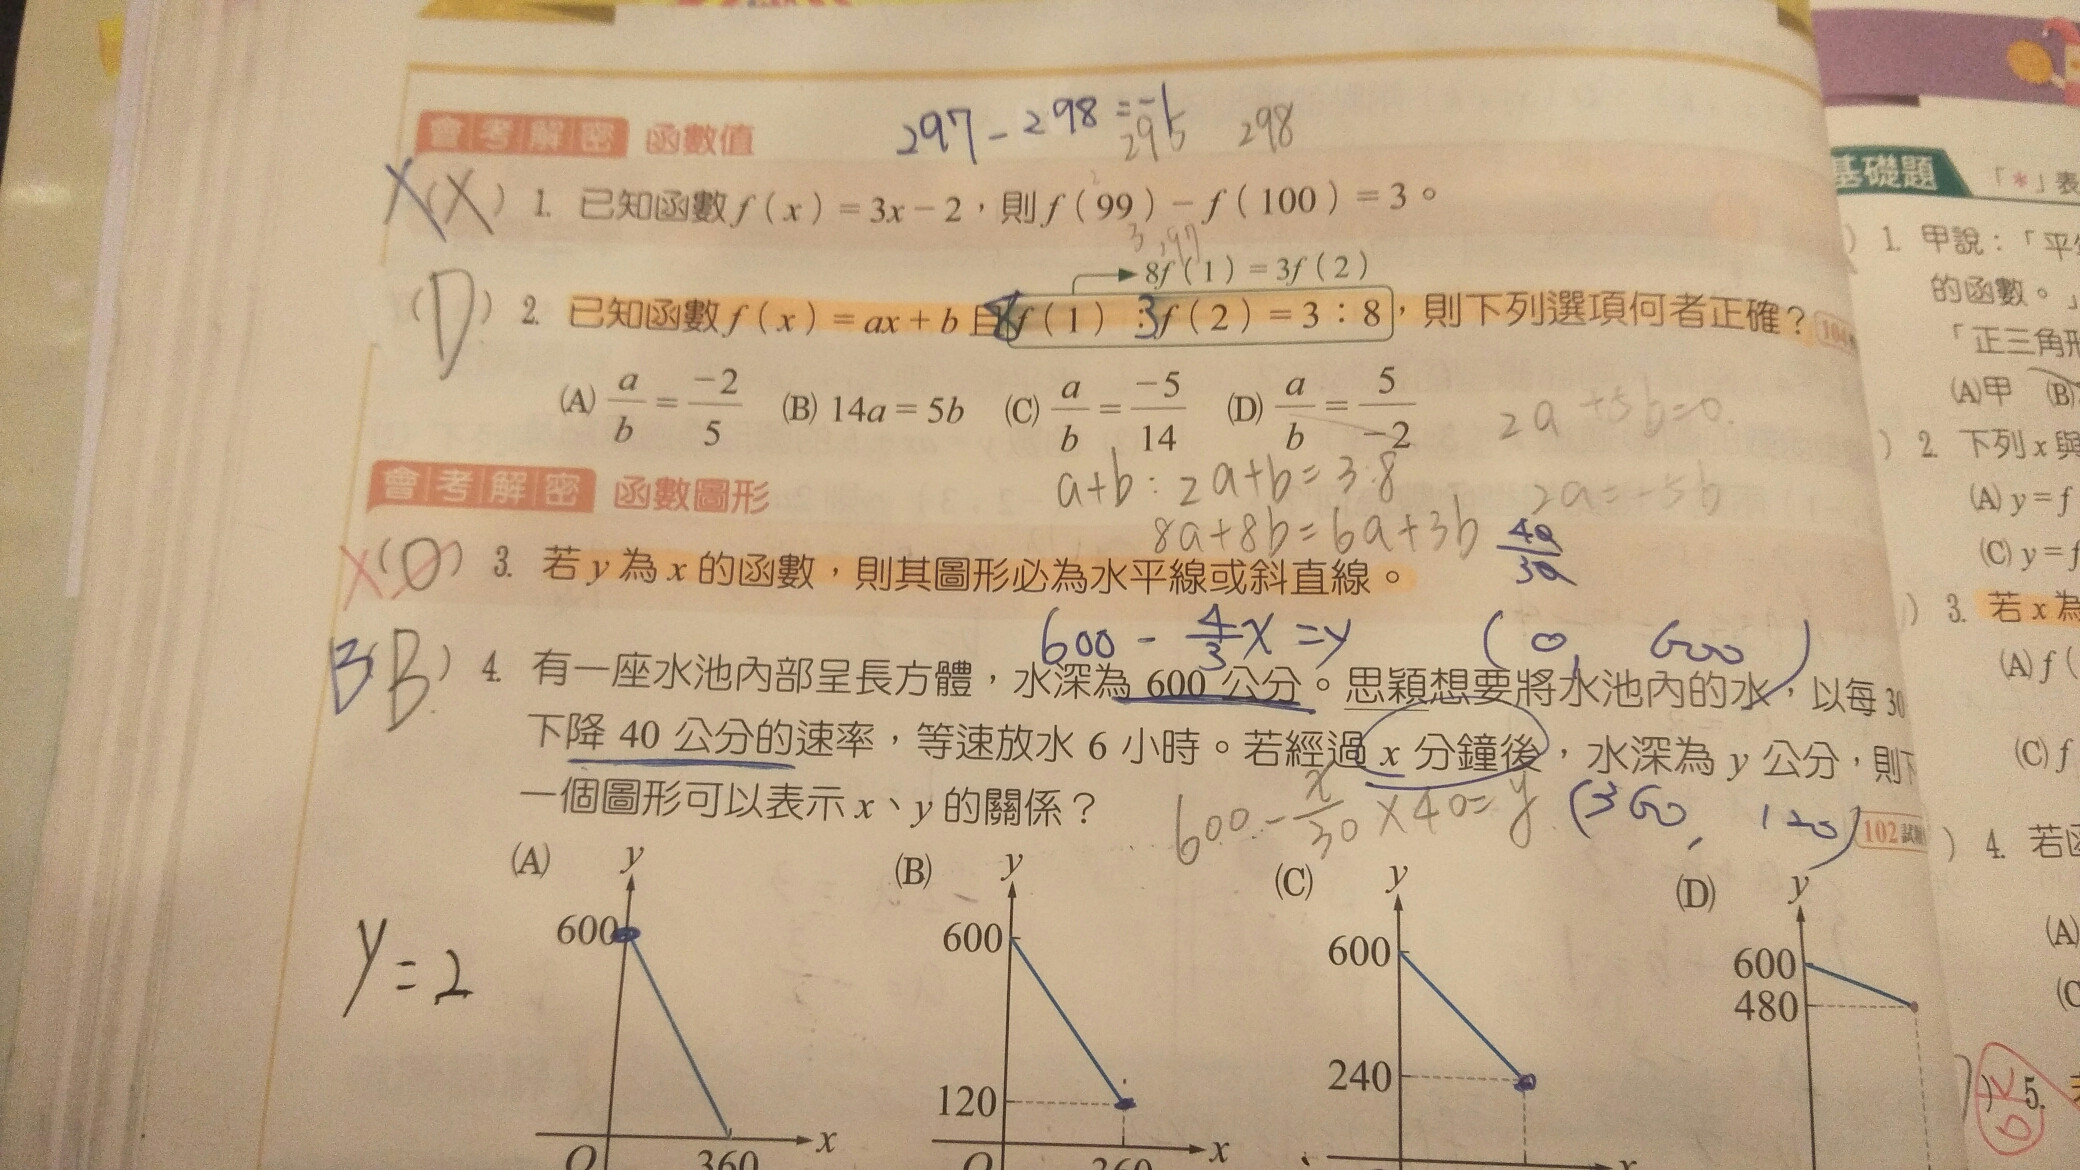 會考解密 函數值
297-298=-1
295 298
X(X) 1. 已知函數 f(x)=3x-2，則 f(99)-f(100)=3。
3 297
8f(1)=3f(2)
(D) 2. 已知函數 f(x)=ax+b 且 f(1):f(2)=3:8，則下列選項何者正確？
(A) a/b=-2/5 (B) 14a=5b (C) a/b=-5/14 (D) a/b=5/-2
2a+5b=0
a+b:2a+b=3:8
2a=-5b
8a+8b=6a+3b
會考解密 函數圖形
X(O) 3. 若 y 為 x 的函數，則其圖形必為水平線或斜直線。
600-4/3x=y
(0, 600)
B(B) 4. 有一座水池內部呈長方體，水深為 600 公分。思穎想要將水池內的水，以每 30
下降 40 公分的速率，等速放水 6 小時。若經過 x 分鐘後，水深為 y 公分，則下
一個圖形可以表示 x、y 的關係？
600-x/30×40=y
(360, 120)
102試
(A) y 600 O 360 x
(B) y 600 120 O 360 x
(C) y 600 240 x
(D) y 600 480
y=2
基礎題 「*」表
1. 甲說：「平
的函數。」
「正三角形
(A)甲 (B)
2. 下列 x 與
(A) y=f
(C) y=f
3. 若 x 為
(A) f(
(C) f
4. 若函
(A)
(C
OK 5.